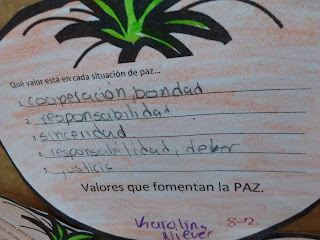 Qué valor está en cada situación de paz...
1. cooperación bondad
2. responsabilidad
3. sinceridad
4. responsabilidad, deber
5. justicia
Valores que fomentan la PAZ.
Karolin 8-2
Niever